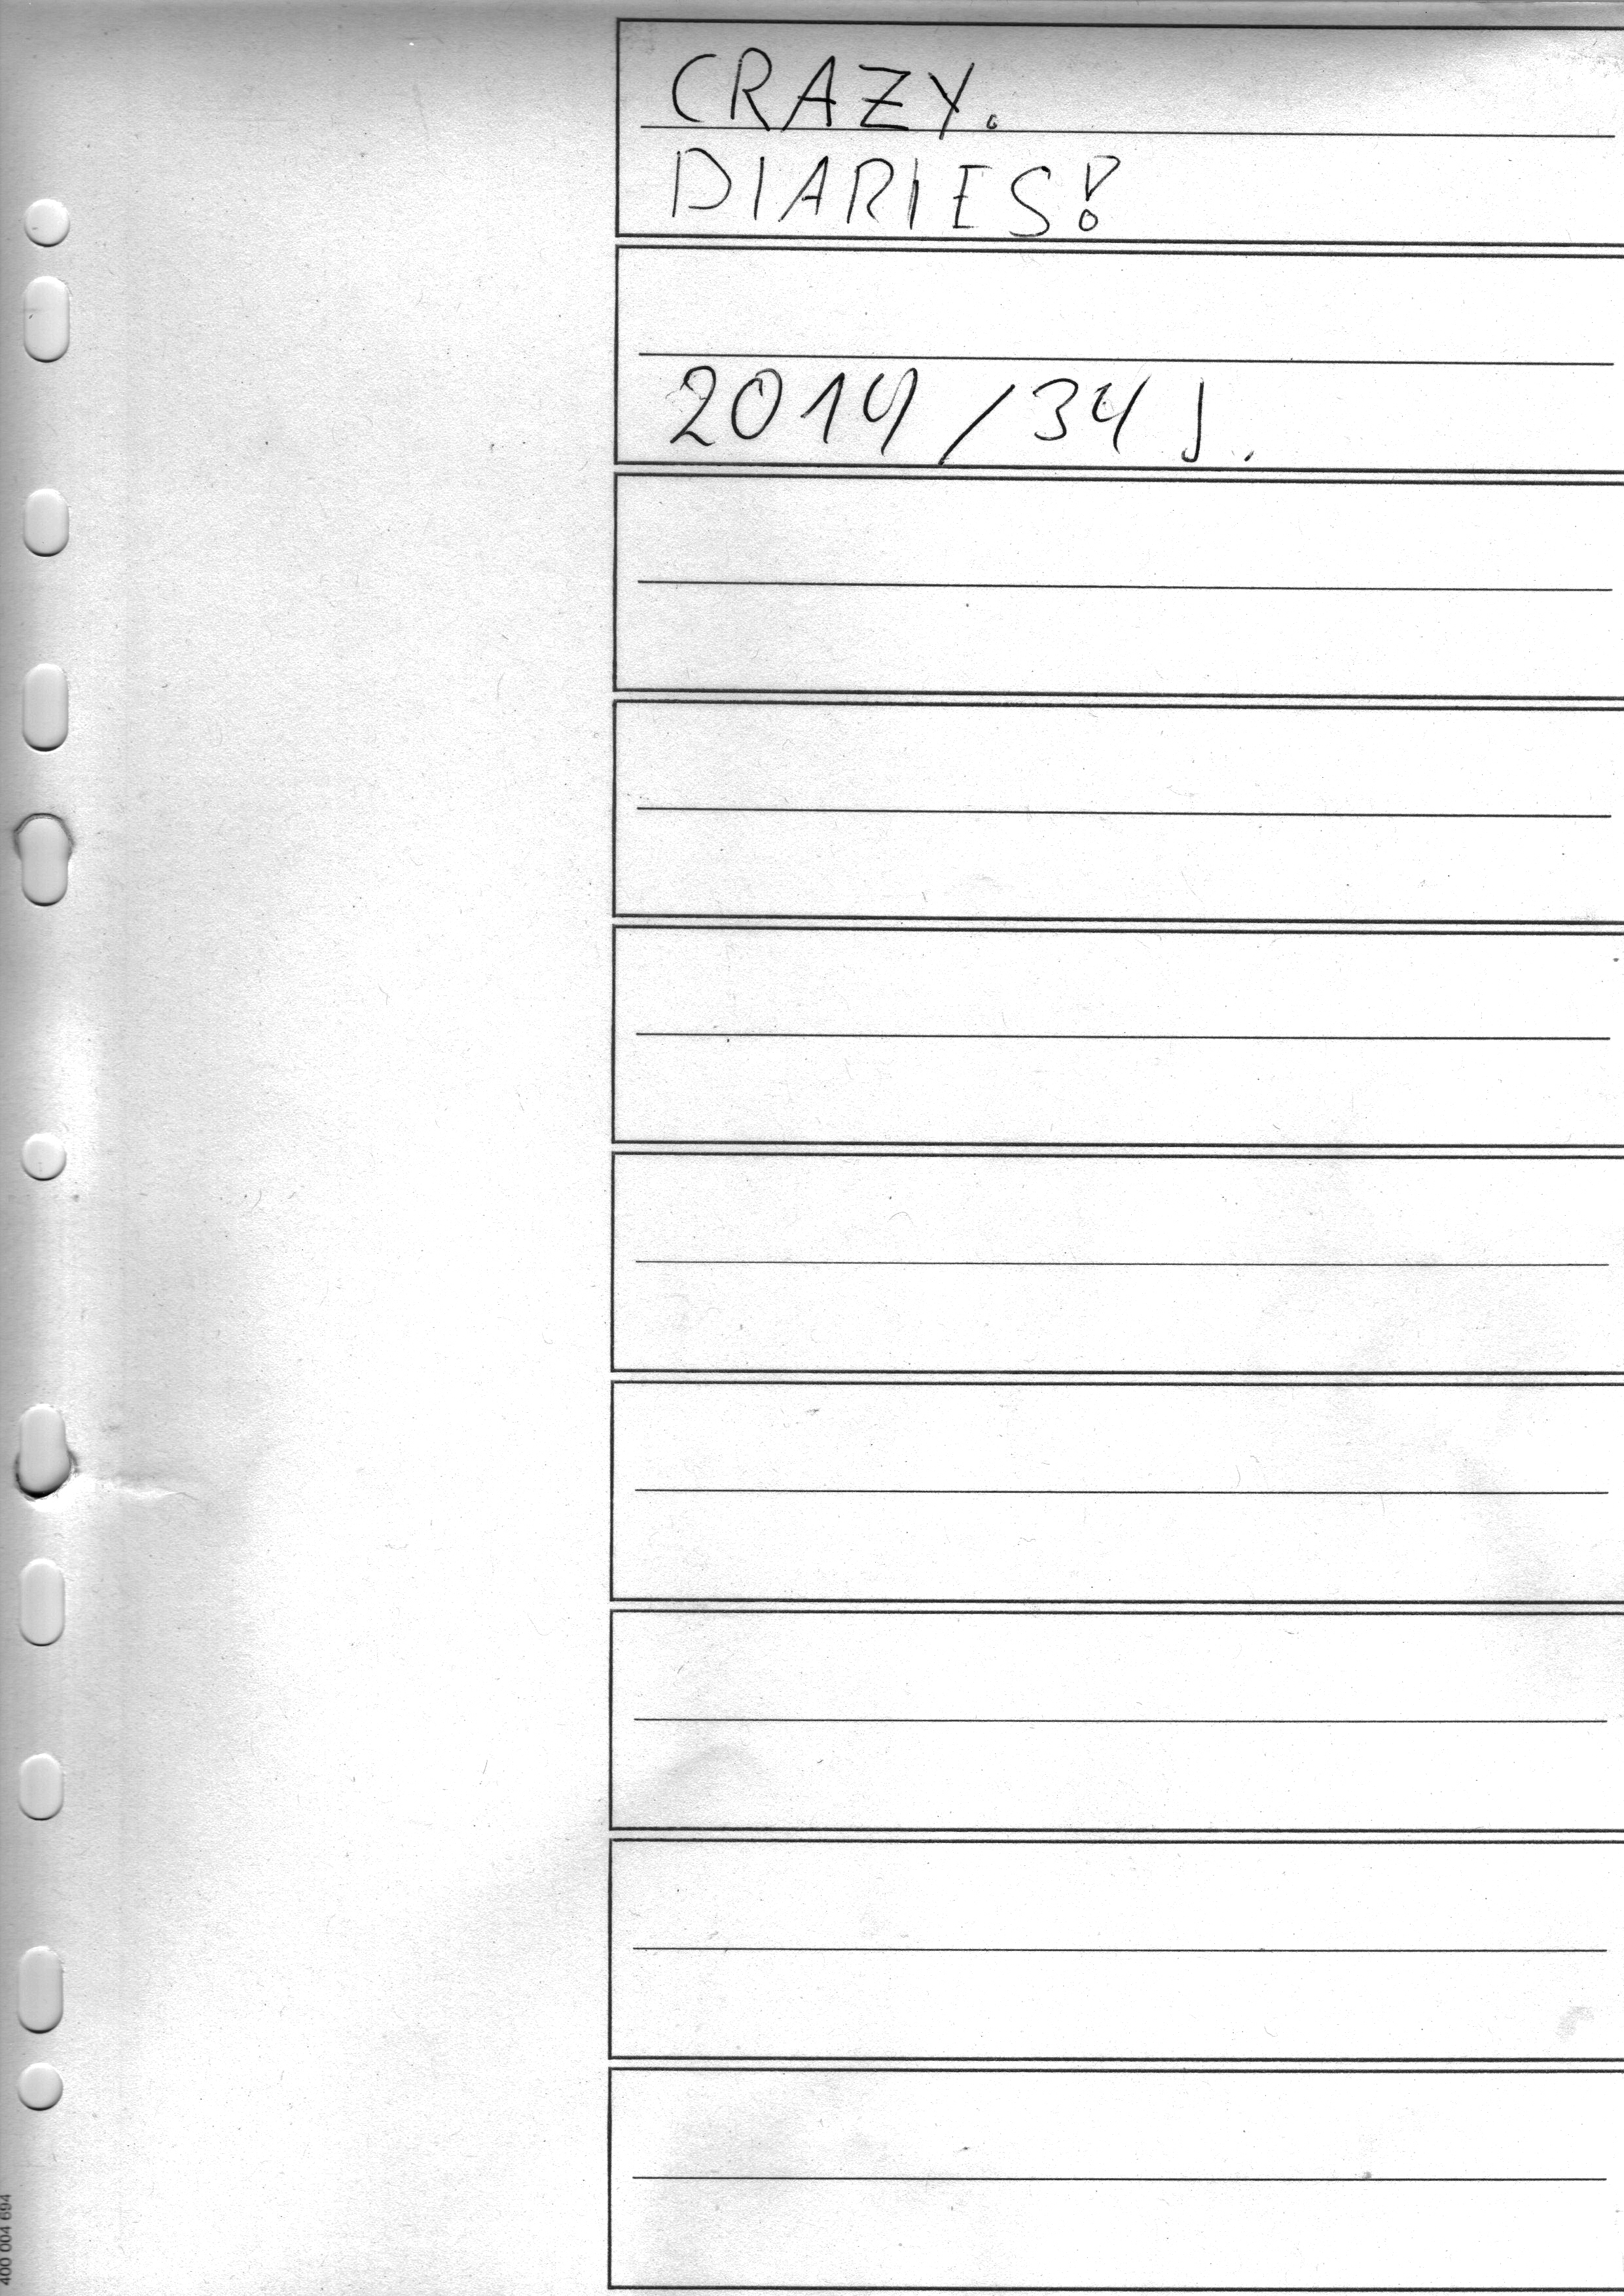 CRAZY.
DIARIES!
2014 / 34 J.
400 004 694